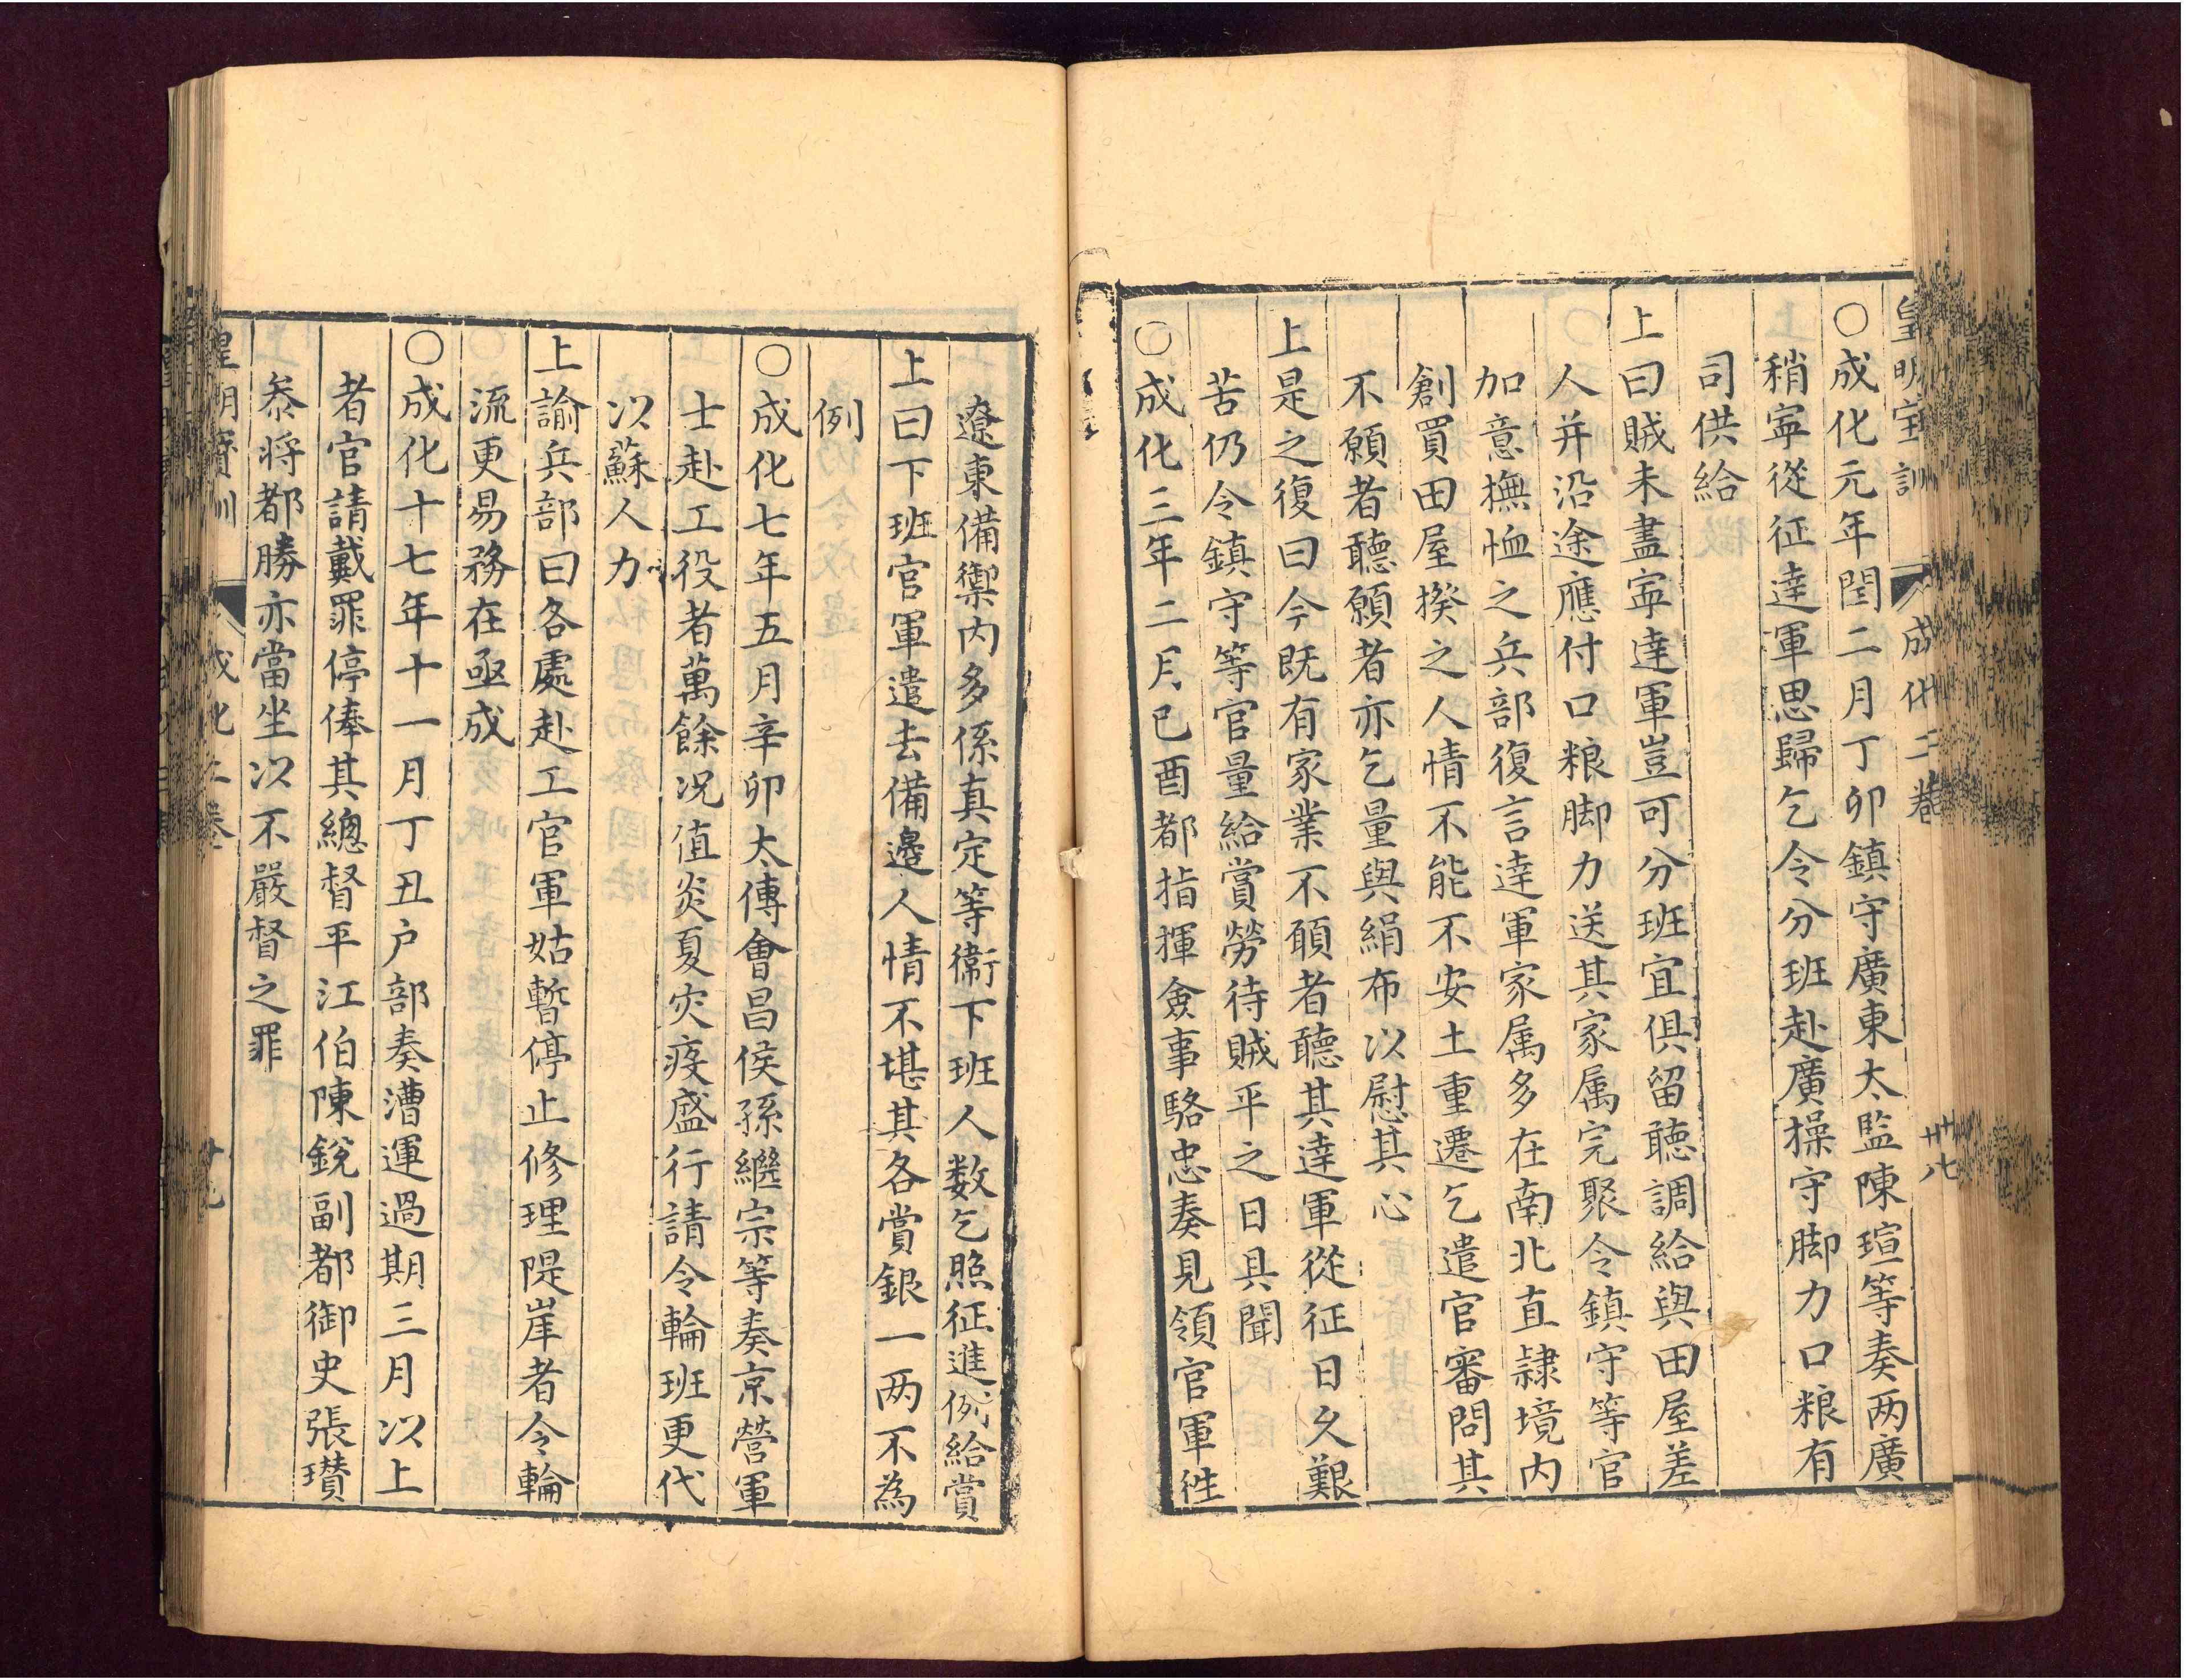 皇明宝訓 成化二卷 廿八
○成化元年閏二月丁卯鎮守廣東太監陳瑄等奏两廣
稍寕從征達軍思歸乞令分班赴廣操守脚力口粮有
司供給
上曰賊未盡寕達軍豈可分班宜俱留聽調給與田屋差
人并沿途應付口粮脚力送其家属完聚令鎮守等官
加意撫恤之兵部復言達軍家属多在南北直隷境内
創買田屋揆之人情不能不安土重遷乞遣官審問其
不願者聽願者亦乞量與絹布以慰其心
上是之復曰今既有家業不願者聽其達軍從征日久艱
苦仍令鎮守等官量給賞勞待賊平之日具聞
○成化三年二月己酉都指揮僉事駱忠奏見領官軍徃
遼東備禦内多係真定等衛下班人数乞照征進例給賞
上曰下班官軍遣去備邊人情不堪其各賞銀一两不為
例
○成化七年五月辛卯太傅會昌侯孫繼宗等奏京營軍
士赴工役者萬餘况值炎夏灾疫盛行請令輪班更代
以蘇人力
上諭兵部曰各處赴工官軍姑暫停止修理隄岸者令輪
流更易務在亟成
○成化十七年十一月丁丑户部奏漕運過期三月以上
者官請戴罪停俸其總督平江伯陳銳副都御史張瓚
叅将都勝亦當坐以不嚴督之罪
皇明寳訓 成化二卷 廿九